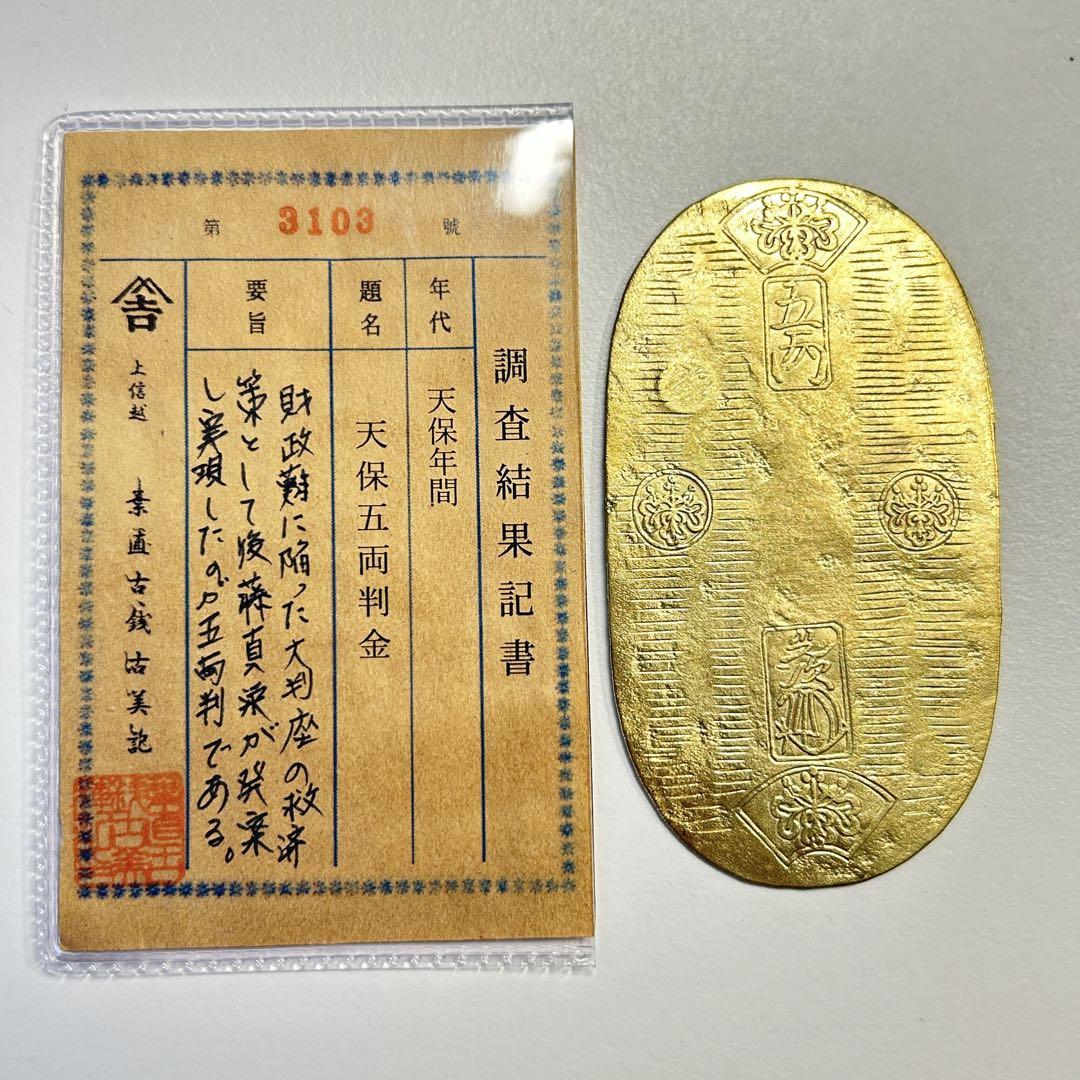 第 3103 號
調査結果記書
年代
天保年間
題名
天保五両判金
要旨
財政難に陥った大判座の救済
策として後藤真乗が発案
し実現したのが五両判である。
上信越
五両